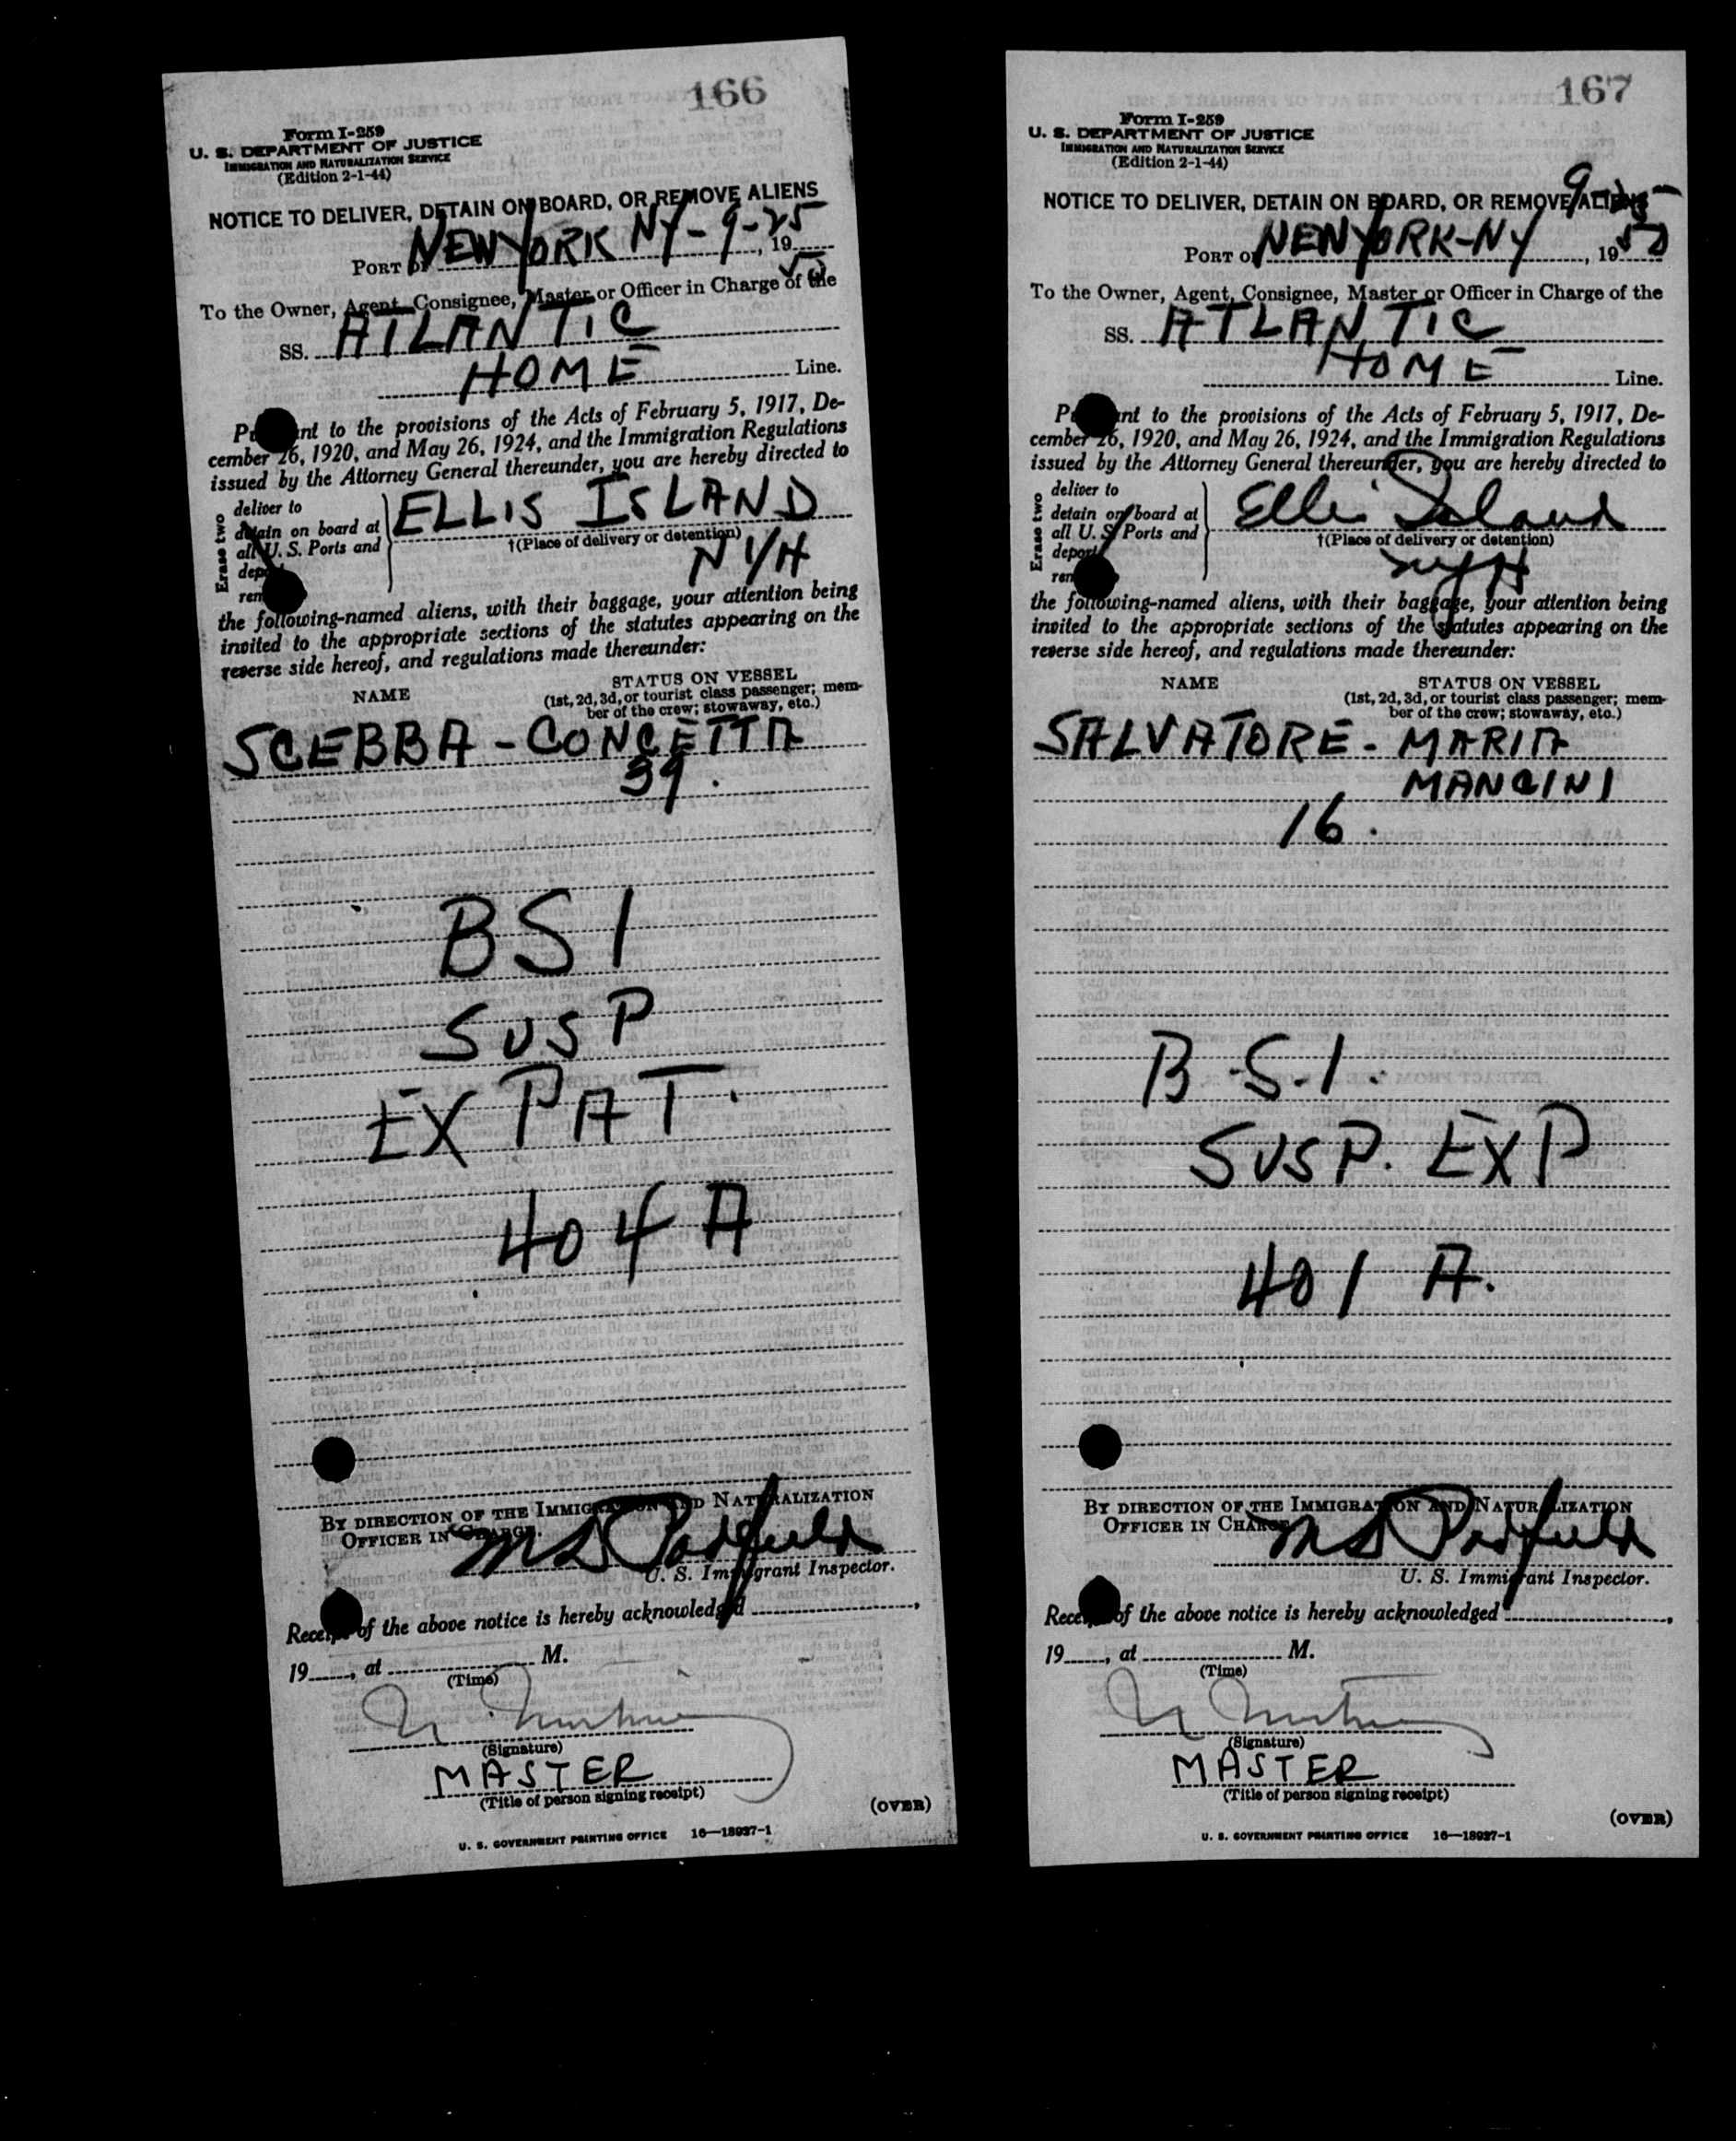 166
Form I-259
U. S. DEPARTMENT OF JUSTICE
IMMIGRATION AND NATURALIZATION SERVICE
(Edition 2-1-44)
NOTICE TO DELIVER, DETAIN ON BOARD, OR REMOVE ALIENS
PORT OF NEW YORK NY - 9-25, 1950
To the Owner, Agent, Consignee, Master or Officer in Charge of the
SS. ATLANTIC
HOME Line.
Pursuant to the provisions of the Acts of February 5, 1917, De-
cember 26, 1920, and May 26, 1924, and the Immigration Regulations
issued by the Attorney General thereunder, you are hereby directed to
Erase two
deliver to
detain on board at
all U. S. Ports and
deport
remove
ELLIS ISLAND
†(Place of delivery or detention)
NYH
the following-named aliens, with their baggage, your attention being
invited to the appropriate sections of the statutes appearing on the
reverse side hereof, and regulations made thereunder:
NAME
STATUS ON VESSEL
(1st, 2d, 3d, or tourist class passenger; mem-
ber of the crew; stowaway, etc.)
SCEBBA - CONCETTA
39.
BSI
SUSP
EX PAT.
404 A
BY DIRECTION OF THE IMMIGRATION AND NATURALIZATION
OFFICER IN CHARGE.
U. S. Immigrant Inspector.
Receipt of the above notice is hereby acknowledged
19____, at ____ M.
(Time)
(Signature)
MASTER
(Title of person signing receipt)
(OVER)
U. S. GOVERNMENT PRINTING OFFICE 16—18937-1
167
Form I-259
U. S. DEPARTMENT OF JUSTICE
IMMIGRATION AND NATURALIZATION SERVICE
(Edition 2-1-44)
NOTICE TO DELIVER, DETAIN ON BOARD, OR REMOVE ALIENS
9-25
PORT OF NEW YORK-NY, 1950
To the Owner, Agent, Consignee, Master or Officer in Charge of the
SS. ATLANTIC
HOME Line.
Pursuant to the provisions of the Acts of February 5, 1917, De-
cember 26, 1920, and May 26, 1924, and the Immigration Regulations
issued by the Attorney General thereunder, you are hereby directed to
Erase two
deliver to
detain on board at
all U. S. Ports and
deport
remove
Ellis Island
†(Place of delivery or detention)
NYH
the following-named aliens, with their baggage, your attention being
invited to the appropriate sections of the statutes appearing on the
reverse side hereof, and regulations made thereunder:
NAME
STATUS ON VESSEL
(1st, 2d, 3d, or tourist class passenger; mem-
ber of the crew; stowaway, etc.)
SALVATORE - MARIA
MANCINI
16.
B.S.I.
SUSP. EXP
401 A.
BY DIRECTION OF THE IMMIGRATION AND NATURALIZATION
OFFICER IN CHARGE
U. S. Immigrant Inspector.
Receipt of the above notice is hereby acknowledged
19____, at ____ M.
(Time)
(Signature)
MASTER
(Title of person signing receipt)
(OVER)
U. S. GOVERNMENT PRINTING OFFICE 16—18937-1